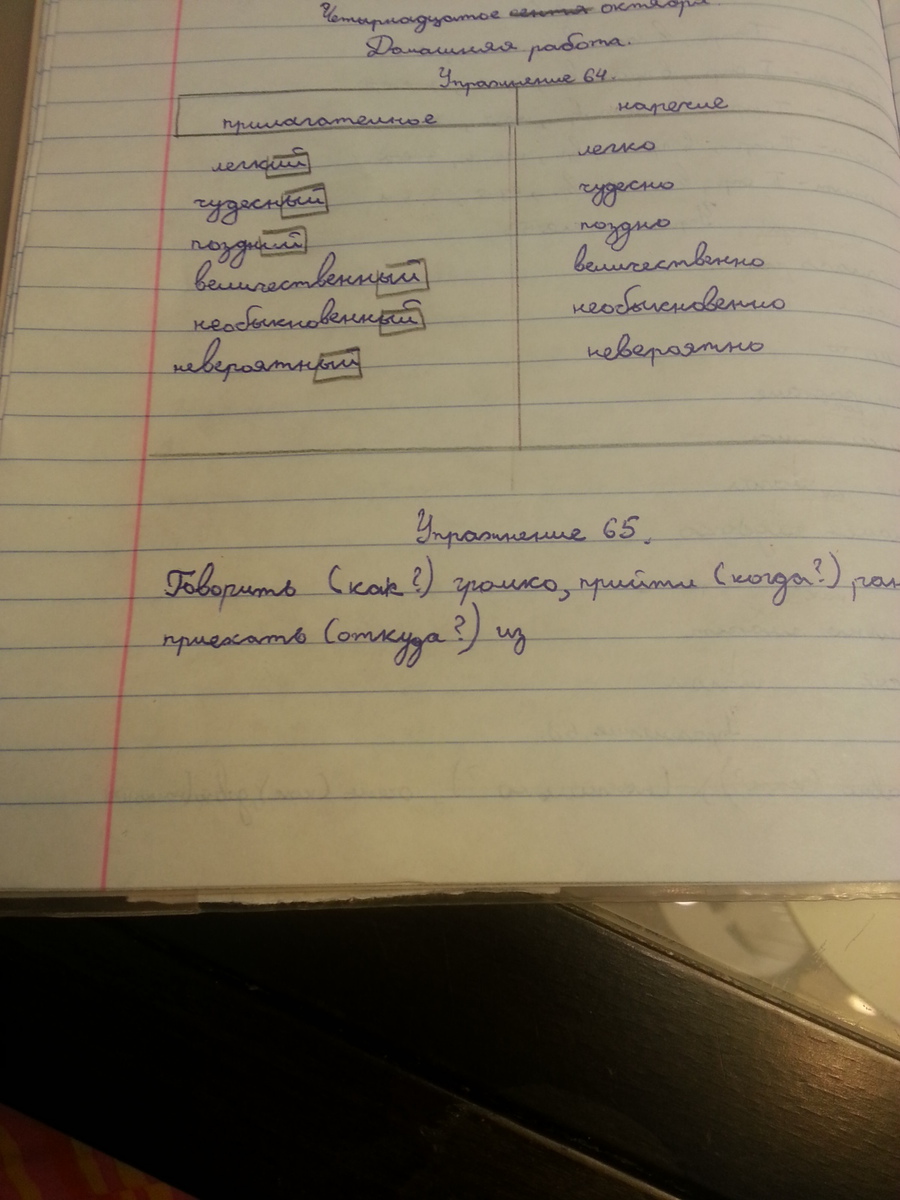 Четырнадцатое сентя октября.
Домашняя работа.
Упражнение 64.
прилагательное наречие
легкий легко
чудесный чудесно
поздний поздно
величественный величественно
необыкновенный необыкновенно
невероятный невероятно
Упражнение 65.
Говорить (как?) громко, прийти (когда?) ран
приехать (откуда?) из